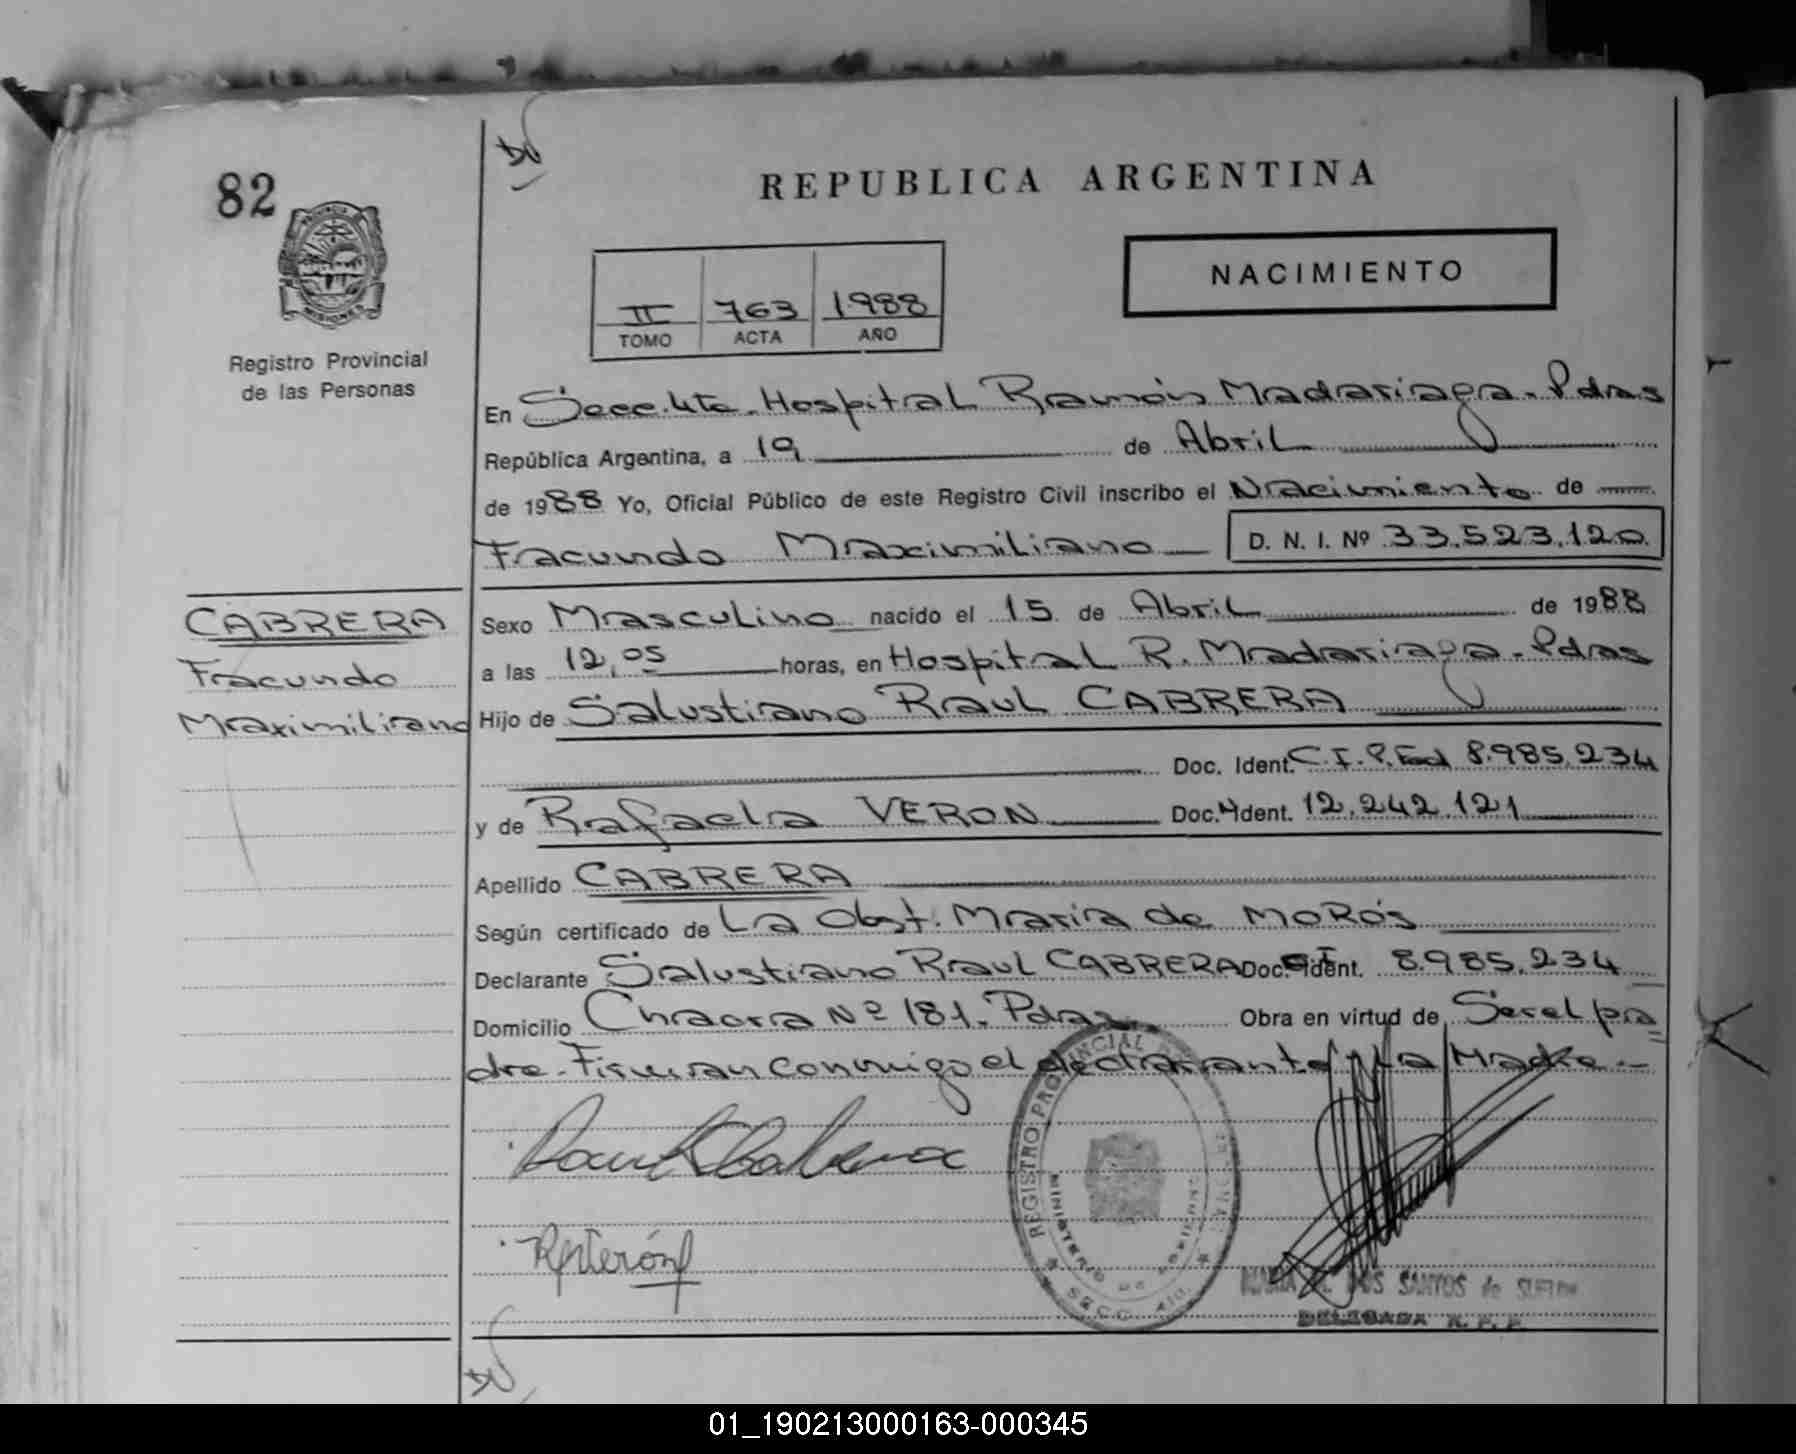 82
REPUBLICA ARGENTINA
NACIMIENTO
II 763 1988
TOMO ACTA AÑO
PROVINCIA DE
MISIONES
Registro Provincial
de las Personas
En Secc. 4ta. Hospital Ramón Madariaga - Pdas
República Argentina, a 19 de Abril
de 1988 Yo, Oficial Público de este Registro Civil inscribo el Nacimiento de
Facundo Maximiliano D. N. I. Nº 33.523.120
CABRERA
Facundo
Maximiliano
Sexo Masculino nacido el 15 de Abril de 1988
a las 12,05 horas, en Hospital R. Madariaga - Pdas
Hijo de Salustiano Raul CABRERA
Doc. Ident. C.I.P.Fed 8.985.234
y de Rafaela VERON Doc. Ident. 12.242.121
Apellido CABRERA
Según certificado de La Obst. Maria de MOROS
Declarante Salustiano Raul CABRERA Doc. Ident. 8.985.234
Domicilio Chacra Nº 181. Pdas Obra en virtud de Ser el pa
dre - Firman conmigo el declarante y La Madre -
REGISTRO PROVINCIAL DE LAS PERSONAS
MINISTERIO DE GOBIERNO
SECC. 4ta.
DOS SANTOS de
DELEGADA R. P. P.
01_190213000163-000345